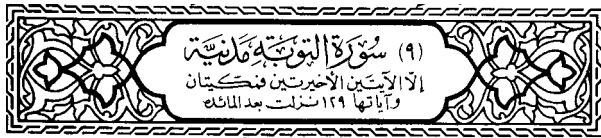 (٩) سُورَةُ التَّوبَةِ مَدَنِيَّة
إلا الآيتين الأخيرتين فمكيتان
وآياتها ١٢٩ نزلت بعد المائدة